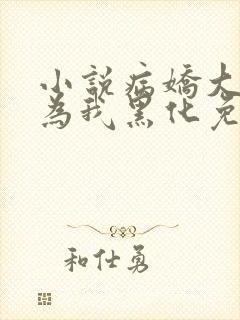 小說病嬌大
為我黑化免
和仕勇